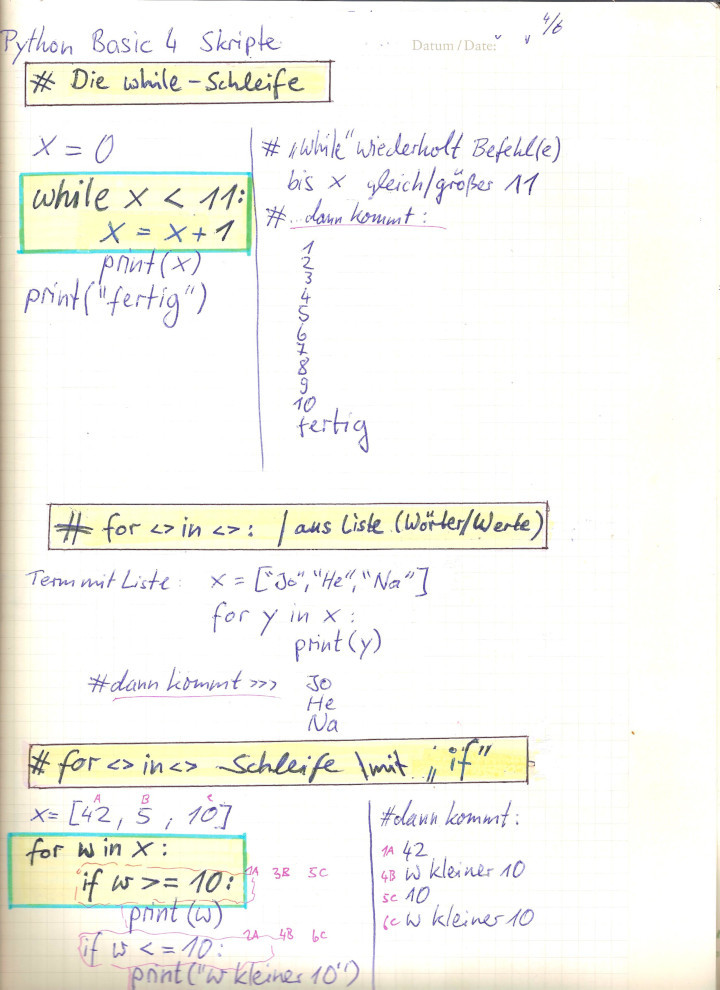 Python Basic 4 Skripte
Datum / Date:
4/6
# Die while-Schleife
x = 0
while x < 11:
x = x + 1
print(x)
print("fertig")
# „while" wiederholt Befehl(e)
bis x gleich/größer 11
# ...dann kommt:
1
2
3
4
5
6
7
8
9
10
fertig
# for <> in <>: / aus Liste (Wörter/Werte)
Term mit Liste: x = ["Jo", "He", "Na"]
for y in x:
print(y)
#dann kommt >>> Jo
He
Na
# for <> in <> Schleife \mit „if"
A B C
x = [42, 5, 10]
for w in x:
if w >= 10: 1A 3B 5C
print(w)
if w <= 10: 2A 4B 6C
print("w kleiner 10")
#dann kommt:
1A 42
4B w kleiner 10
5C 10
6C w kleiner 10